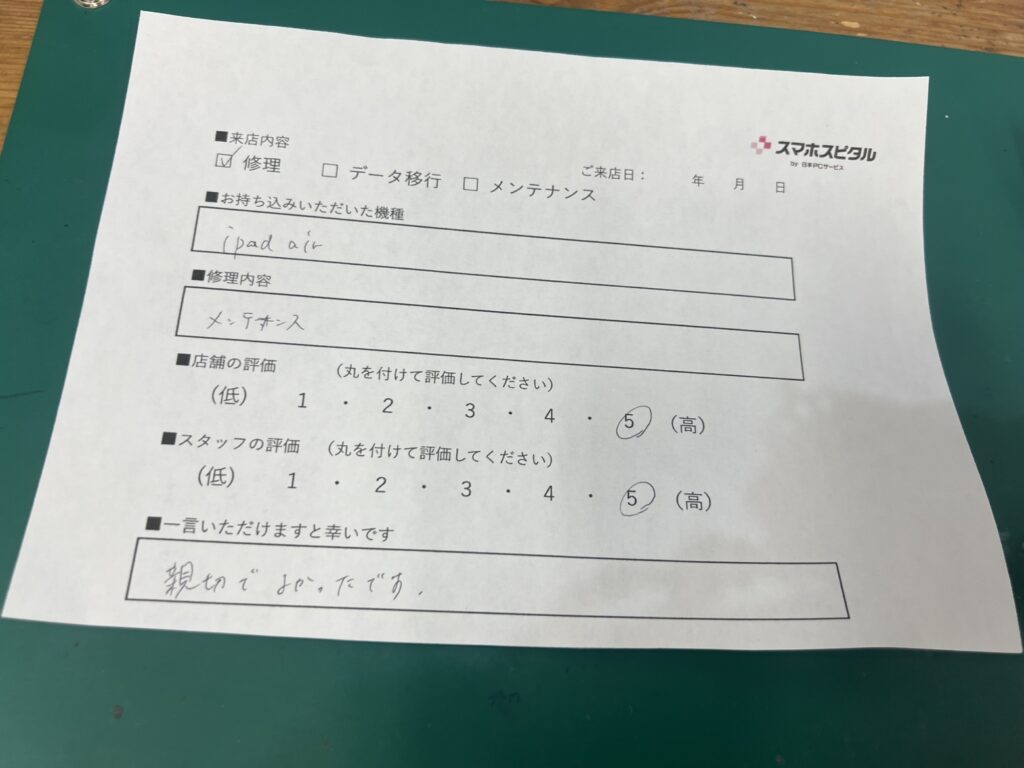 ■来店内容
スマホスピタル
by 日本PCサービス
☑ 修理 □ データ移行 □ メンテナンス
ご来店日： 年 月 日
■お持ち込みいただいた機種
ipad air
■修理内容
メンテナンス
■店舗の評価 （丸を付けて評価してください）
（低） 1 ・ 2 ・ 3 ・ 4 ・ 5 （高）
■スタッフの評価 （丸を付けて評価してください）
（低） 1 ・ 2 ・ 3 ・ 4 ・ 5 （高）
■一言いただけますと幸いです
親切でよかったです.